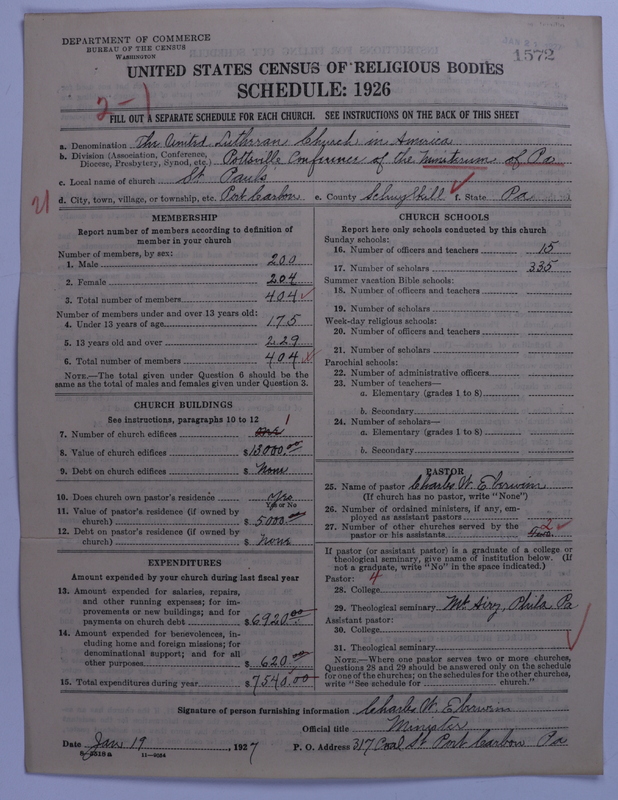 DEPARTMENT OF COMMERCE
BUREAU OF THE CENSUS
WASHINGTON
1572
UNITED STATES CENSUS OF RELIGIOUS BODIES
SCHEDULE: 1926
2-1
FILL OUT A SEPARATE SCHEDULE FOR EACH CHURCH. SEE INSTRUCTIONS ON THE BACK OF THIS SHEET
a. Denomination The United Lutheran Church in America
b. Division (Association, Conference, Diocese, Presbytery, Synod, etc.) Pottsville Conference of the Ministerium of Pa
c. Local name of church St Pauls
21
d. City, town, village, or township, etc. Port Carbon e. County Schuylkill f. State Pa
MEMBERSHIP
Report number of members according to definition of
member in your church
Number of members, by sex:
1. Male 200
2. Female 204
3. Total number of members 404
Number of members under and over 13 years old:
4. Under 13 years of age 175
5. 13 years old and over 229
6. Total number of members 404
NOTE.—The total given under Question 6 should be the
same as the total of males and females given under Question 3.
CHURCH BUILDINGS
See instructions, paragraphs 10 to 12
7. Number of church edifices one 1
8. Value of church edifices $13000.00
9. Debt on church edifices $ None
10. Does church own pastor's residence Yes
Yes or No
11. Value of pastor's residence (if owned by
church) $ 5000.00
12. Debt on pastor's residence (if owned by
church) $ None
EXPENDITURES
Amount expended by your church during last fiscal year
13. Amount expended for salaries, repairs,
and other running expenses; for im-
provements or new buildings; and for
payments on church debt $6920.00
14. Amount expended for benevolences, in-
cluding home and foreign missions; for
denominational support; and for all
other purposes $ 620.00
15. Total expenditures during year $7540.00
CHURCH SCHOOLS
Report here only schools conducted by this church
Sunday schools:
16. Number of officers and teachers 15
17. Number of scholars 335
Summer vacation Bible schools:
18. Number of officers and teachers
19. Number of scholars
Week-day religious schools:
20. Number of officers and teachers
21. Number of scholars
Parochial schools:
22. Number of administrative officers
23. Number of teachers—
a. Elementary (grades 1 to 8)
b. Secondary
24. Number of scholars—
a. Elementary (grades 1 to 8)
b. Secondary
PASTOR
25. Name of pastor Charles W. Eberwein
(If church has no pastor, write "None")
26. Number of ordained ministers, if any, em-
ployed as assistant pastors
27. Number of other churches served by the
pastor or his assistants Two 2
If pastor (or assistant pastor) is a graduate of a college or
theological seminary, give name of institution below. (If
not a graduate, write "No" in the space indicated.)
Pastor: 4
28. College
29. Theological seminary Mt Airy, Phila Pa
Assistant pastor:
30. College
31. Theological seminary
NOTE.—Where one pastor serves two or more churches,
Questions 28 and 29 should be answered only on the schedule
for one of the churches; on the schedules for the other churches,
write "See schedule for church."
Signature of person furnishing information Charles W. Eberwein
Official title Minister
Date Jan 19, 1927 P. O. Address 317 Coal St Port Carbon Pa
11-9584